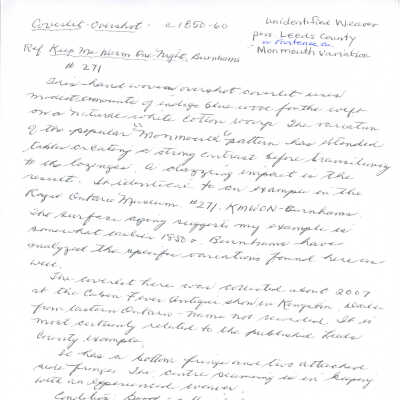 Coverlet - Overshot - c 1850-60
Unidentified Weaver
poss Leeds County
Monmouth Variation
Ref Keep Me Warm One Night, Burnhams
# 271
This hand woven overshot coverlet uses
modest amounts of indigo blue wool for the weft
on a natural white cotton warp. The variation
of the popular "Monmouth" pattern has blended
tables creating a strong contrast before transitioning
to the lozenges. A dazzling impact is the
result. Is identical to an example in the
Royal Ontario Museum #271. KMWON - Burnhams.
The surface aging suggests my example is
somewhat earlier 1850s. Burnhams have
analyzed the specific variations found here in
use.
The coverlet here was collected about 2007
at the Cabin Fever Antique show in Kingston. Dealer
from Eastern Ontario - name not recorded. It is
most certainly related to the published Leeds
County example.
It has a bottom fringe and two attached
side fringes. The centre seaming is in keeping
with an experienced weaver.
Condition Good